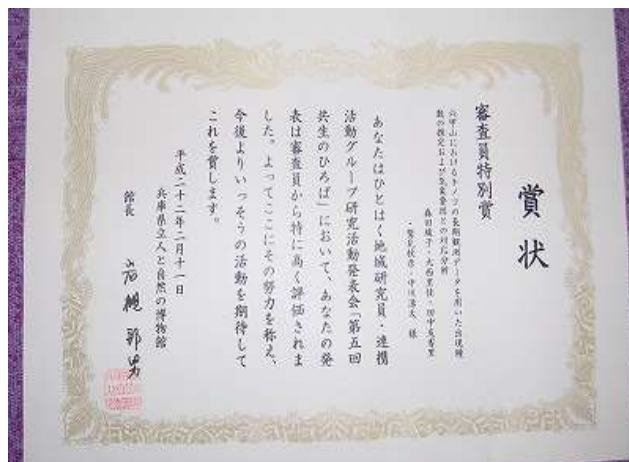 賞状
審査員特別賞
六甲山におけるキノコの長期観測データを用いた出現種
数の推定および気象要因との対応分析
あなたはひとはく地域研究員・連携
活動グループ研究活動発表会「第五回
共生のひろば」において、あなたの発
表は審査員から特に高く評価されま
した。よってここにその努力を称え、
今後よりいっそうの活動を期待して
これを賞します。
平成二十二年二月十一日
兵庫県立人と自然の博物館
館長 岩槻邦男